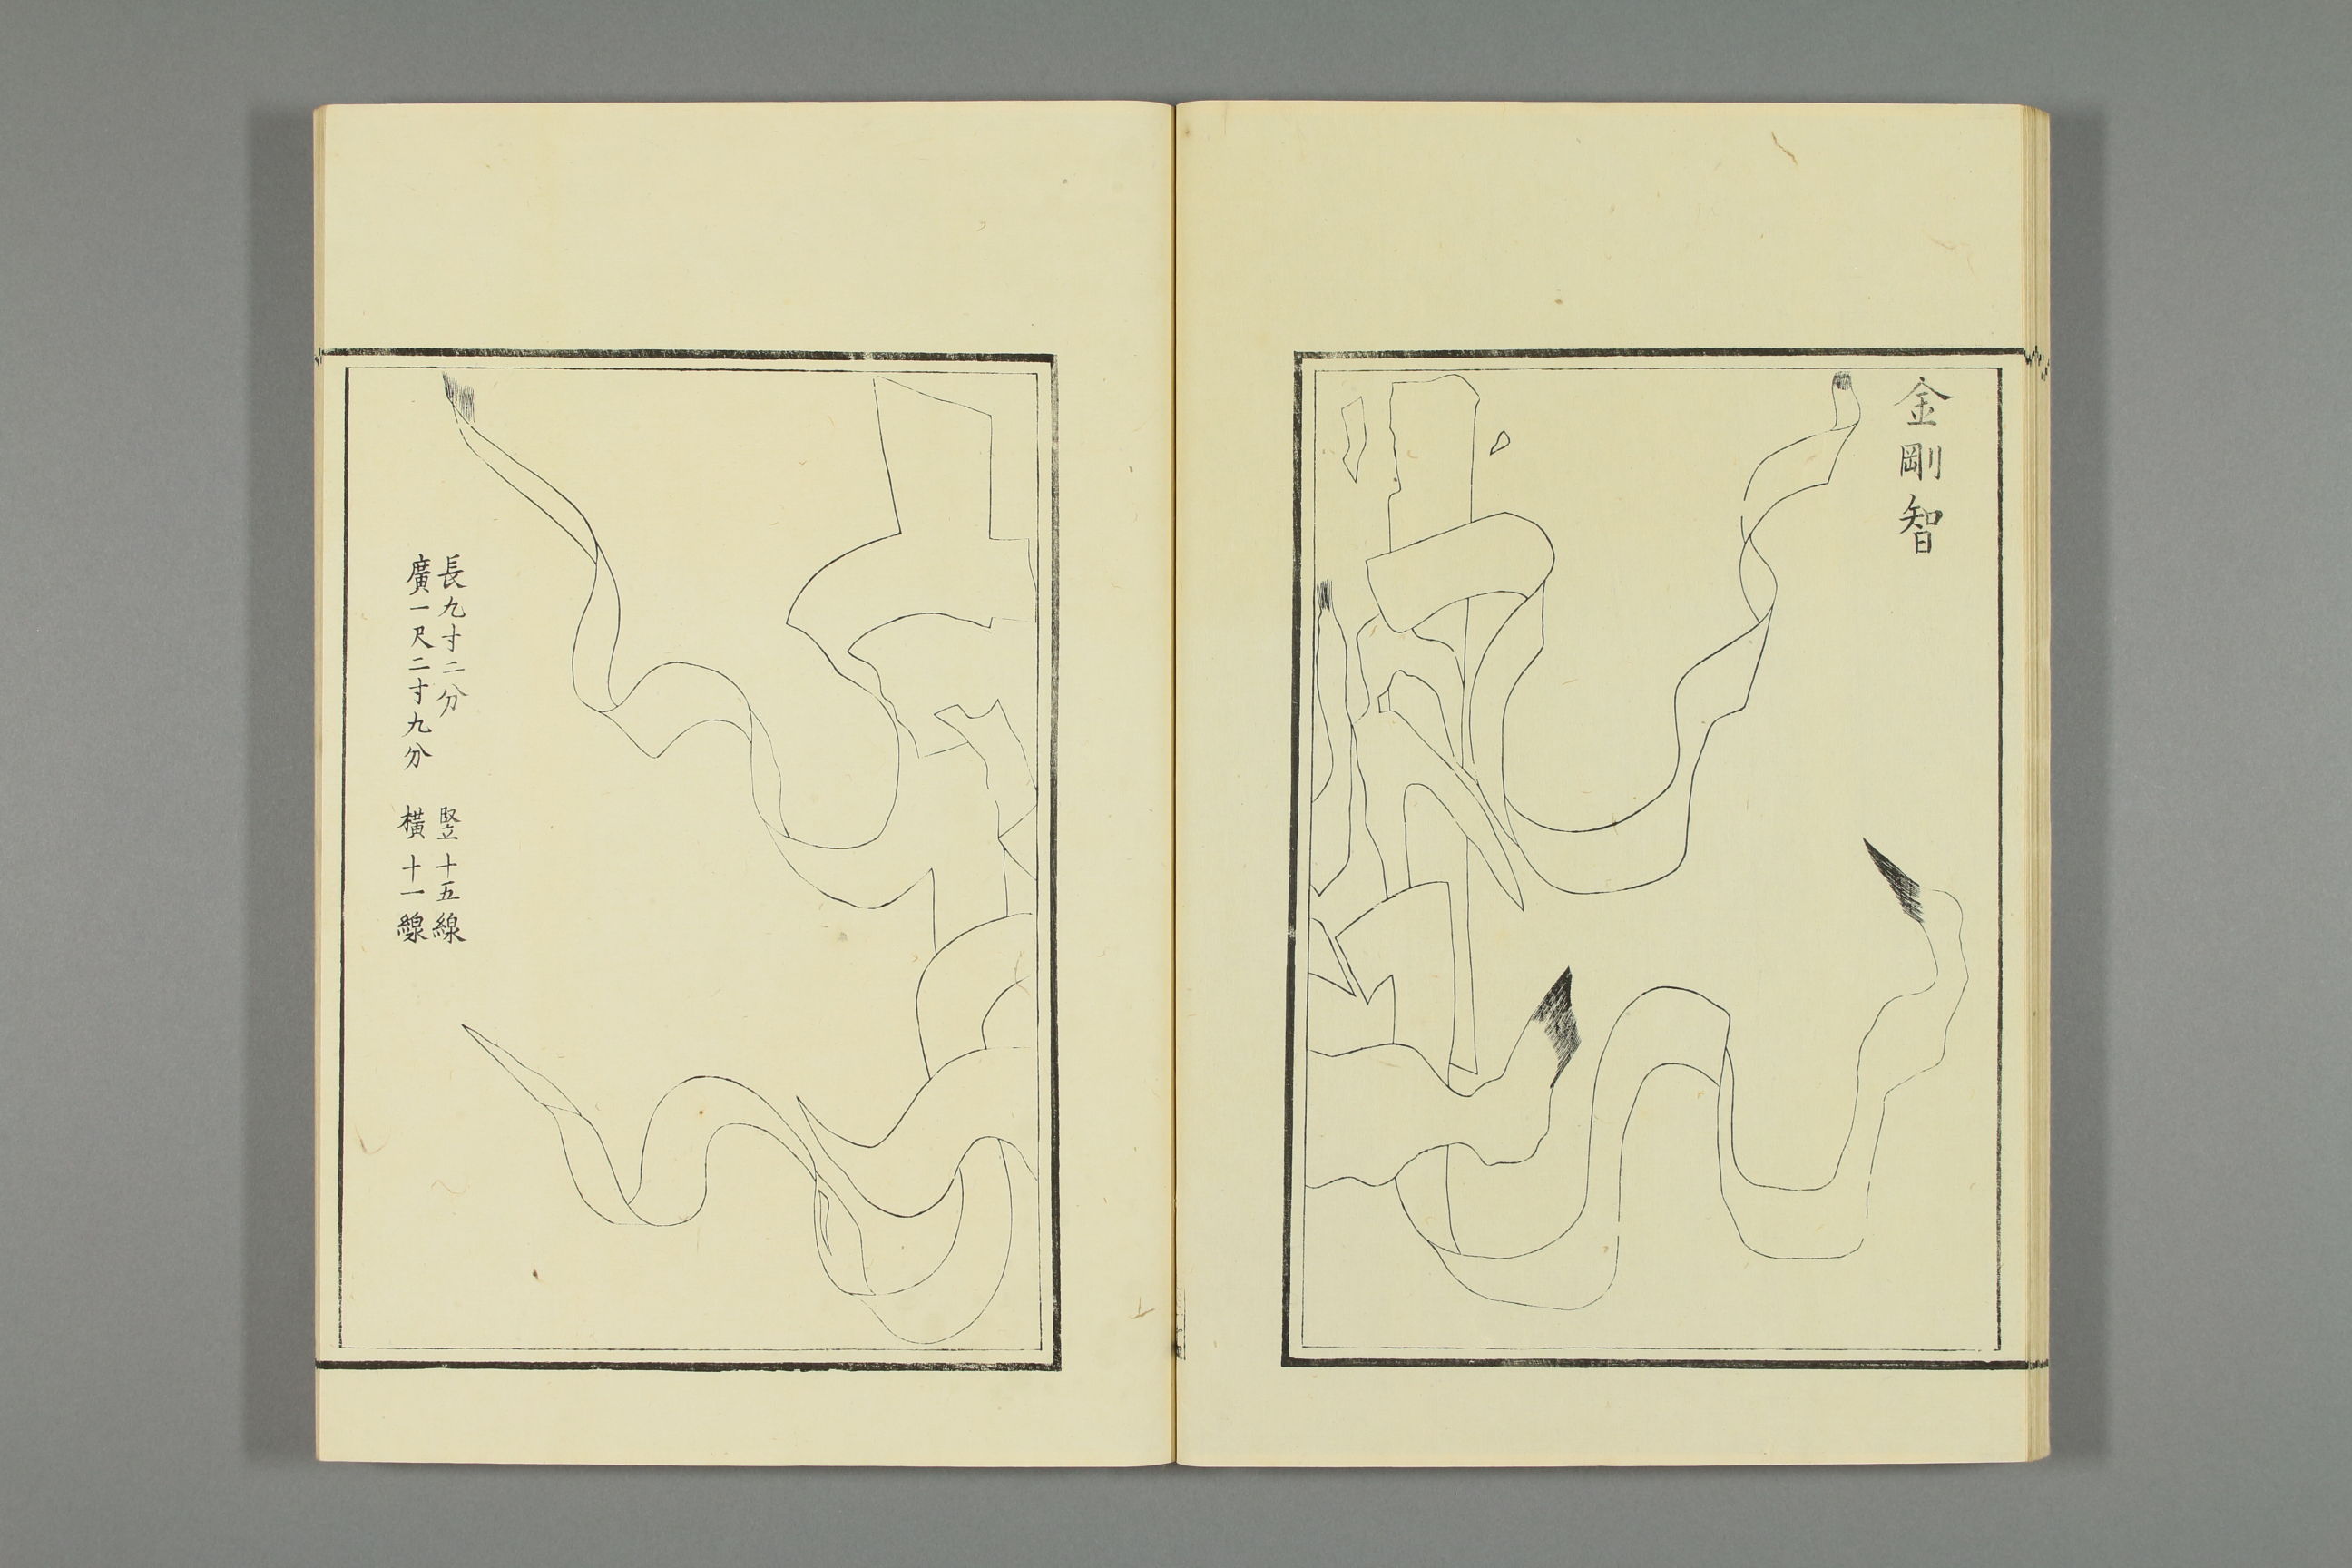 金剛智
長九寸二分 竪十五線
廣一尺二寸九分 橫十一線